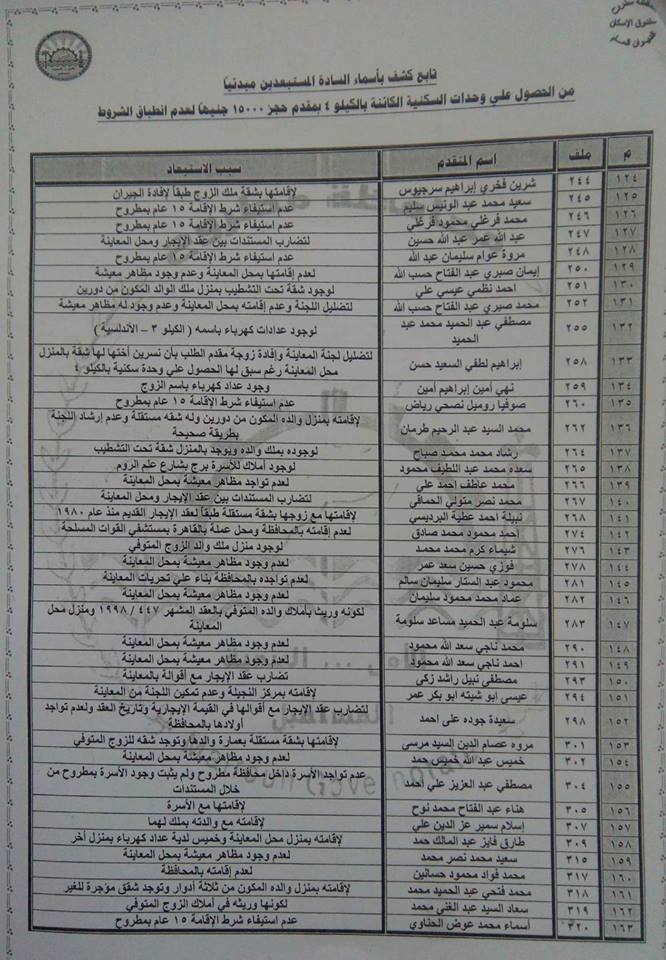 محافظة مطروح
صندوق الإسكان
تابع كشف بأسماء السادة المستبعدين مبدئياً
من الحصول علي وحدات السكنية الكائنة بالكيلو ٤ بمقدم حجز ١٥٠٠٠ جنيهاً لعدم انطباق الشروط
م ملف اسم المتقدم سبب الاستبعاد
١٢٤ ٢٤٤ شرين فخري إبراهيم سرجيوس لإقامتها بشقة ملك الزوج طبقاً لأفادة الجيران
١٢٥ ٢٤٥ سعيد محمد عبد الونيس سليم عدم استيفاء شرط الإقامة ١٥ عام بمطروح
١٢٦ ٢٤٦ محمد فرغلي محمود فرغلي عدم استيفاء شرط الإقامة ١٥ عام بمطروح
١٢٧ ٢٤٧ عبد الله عمر عبد الله حسين لتضارب المستندات بين عقد الإيجار ومحل المعاينة
١٢٨ ٢٤٨ مروة عوام سليمان عبد الله عدم استيفاء شرط الإقامة ١٥ عام بمطروح
١٢٩ ٢٥٠ إيمان صبري عبد الفتاح حسب الله لعدم إقامتها بمحل المعاينة وعدم وجود مظاهر معيشة
١٣٠ ٢٥١ احمد نظمي عيسي علي لوجود شقة تحت التشطيب بملك الوالد المكون من دورين
١٣١ ٢٥٢ محمد صبري عبد الفتاح حسب الله لتضليل اللجنة وعدم إقامته بمحل المعاينة وعدم وجود له مظاهر معيشة
١٣٢ ٢٥٥ مصطفي عبد الحميد محمد عبد الحميد لوجود عدادات كهرباء باسمه ( الكيلو ٣ – الأندلسية )
١٣٣ ٢٥٨ إبراهيم لطفي السعيد حسن لتضليل لجنة المعاينة وإفادة زوجة مقدم الطلب بأن نسرين أختها لها شقة بالمنزل
محل المعاينة رغم سبق لها الحصول علي وحدة سكنية بالكيلو ٤
١٣٤ ٢٥٩ نهي أمين إبراهيم أمين وجود عداد كهرباء باسم الزوج
١٣٥ ٢٦٠ صوفيا روميل نصحي رياض عدم استيفاء شرط الإقامة ١٥ عام بمطروح
١٣٦ ٢٦٢ محمد السيد عبد الرحيم طرمان لإقامته بمنزل والده المكون من دورين وله شقه مستقلة وعدم إرشاد اللجنة
بطريقة صحيحة
١٣٧ ٢٦٤ رشاد محمد محمد صباح لوجوده بملك والده ويوجد بالمنزل شقة تحت التشطيب
١٣٨ ٢٦٥ سعده محمد عبد اللطيف محمود لوجود أملاك للأسرة برج بشارع علم الروم
١٣٩ ٢٦٦ محمد عاطف احمد علي لعدم تواجد مظاهر معيشة بمحل المعاينة
١٤٠ ٢٦٧ محمد نصر متولي الحماقي لتضارب المستندات بين عقد الإيجار ومحل المعاينة
١٤١ ٢٦٨ نبيلة احمد عطية البرديسي لإقامتها مع زوجها بشقة مستقلة طبقاً لعقد الإيجار القديم منذ عام ١٩٨٠
١٤٢ ٢٧٤ احمد محمود محمد صادق لعدم إقامته بالمحافظة ومحل عملة بالقاهرة بمستشفي القوات المسلحة
١٤٣ ٢٧٦ شيماء كرم محمد محمد لوجود منزل ملك والد الزوج المتوفي
١٤٤ ٢٧٨ فوزي حسين سعد عمر لعدم وجود مظاهر معيشة بمحل المعاينة
١٤٥ ٢٨١ محمود عبد الستار سليمان سالم لعدم تواجده بالمحافظة بناء علي تحريات المعاينة
١٤٦ ٢٨٢ عماد محمد محمود سليمان لعدم وجود مظاهر معيشة بمحل المعاينة
١٤٧ ٢٨٣ سلومة عبد الحميد مساعد سلومة لكونه وريث بأملاك والده المتوفي بالعقد المشهر ٤٤٧ / ١٩٩٨ ومنزل محل
المعاينة
١٤٨ ٢٩٠ محمد ناجي سعد الله محمود لعدم وجود مظاهر معيشة بمحل المعاينة
١٤٩ ٢٩١ احمد ناجي سعد الله محمود لعدم وجود مظاهر معيشة بمحل المعاينة
١٥٠ ٢٩٣ مصطفي نبيل راشد زكي تضارب عقد الإيجار مع أقوالة بالمعاينة
١٥١ ٢٩٤ عيسي ابو شيته ابو بكر عمر لإقامته بمركز النجيلة وعدم تمكين اللجنة من المعاينة
١٥٢ ٢٩٨ سعيدة جوده علي احمد لتضارب عقد الإيجار مع أقوالها في القيمة الإيجارية وتاريخ العقد ولعدم تواجد
أولادها بالمحافظة
١٥٣ ٣٠١ مروه عصام الدين السيد مرسى لإقامتها بشقة مستقلة بعمارة والدها وتوجد شقه للزوج المتوفي
١٥٤ ٣٠٢ خميس عبد الله خميس حمد لعدم وجود مظاهر معيشة بمحل المعاينة
١٥٥ ٣٠٤ مصطفي عبد العزيز علي احمد عدم تواجد الأسرة داخل محافظة مطروح ولم يثبت وجود الأسرة بمطروح من
خلال المستندات
١٥٦ ٣٠٥ هناء عبد الفتاح محمد نوح لإقامتها مع الأسرة
١٥٧ ٣٠٧ إسلام سمير عز الدين علي لإقامته مع والدته بملك لهما
١٥٨ ٣٠٩ طارق فايز عبد المالك حمد لإقامته بمنزل محل المعاينة وخميس لدية عداد كهرباء بمنزل أخر
١٥٩ ٣١٥ سعيد محمد نصر محمد لعدم وجود مظاهر معيشة بمحل المعاينة
١٦٠ ٣١٧ محمد فؤاد محمود حسانين لعدم إقامته بالمحافظة
١٦١ ٣١٨ محمد فتحي عبد الحميد محمد لإقامته بمنزل والده المكون من ثلاثة أدوار وتوجد شقق مؤجرة للغير
١٦٢ ٣١٩ سعاد السيد عبد الغني محمد لكونها وريثه في أملاك الزوج المتوفي
١٦٣ ٣٢٠ أسماء محمد عوض الحناوي عدم استيفاء شرط الإقامة ١٥ عام بمطروح